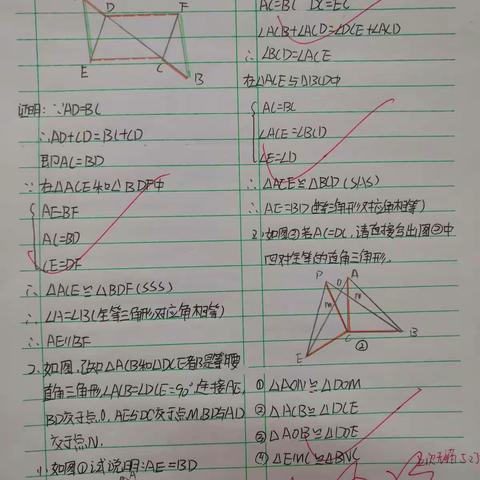 D
F
E
C
B
证明:∵AD=BC
∴AD+CD=BC+CD
即AC=BD
∵在△ACE和△BDF中
AE=BF
AC=BD
CE=DF
∴△ACE≌△BDF(SSS)
∴∠A=∠B(全等三角形对应角相等)
∴AE∥BF
2、如图,已知△ACB和△DCE都是等腰
直角三角形,∠ACB=∠DCE=90°,连接AE,
BD交于点O,AE与DC交于点M,BD与AC
交于点N.
(1)如图①试说明:AE=BD
AC=BC DC=EC
∠ACB+∠ACD=∠DCE+∠ACD
∴∠BCD=∠ACE
在△ACE与△BCD中
AC=BC
∠ACE=∠BCD
∠E=∠D
∴△ACE≌△BCD(SAS)
∴AE=BD(全等三角形对应角相等)
2.如图②若AC=DC,请直接写出图②中
四对全等的直角三角形.
A
B
E
C
②
①△AON≌△DOM
②△ACB≌△DCE
③△AOB≌△DOE
④△EMC≌△BNC